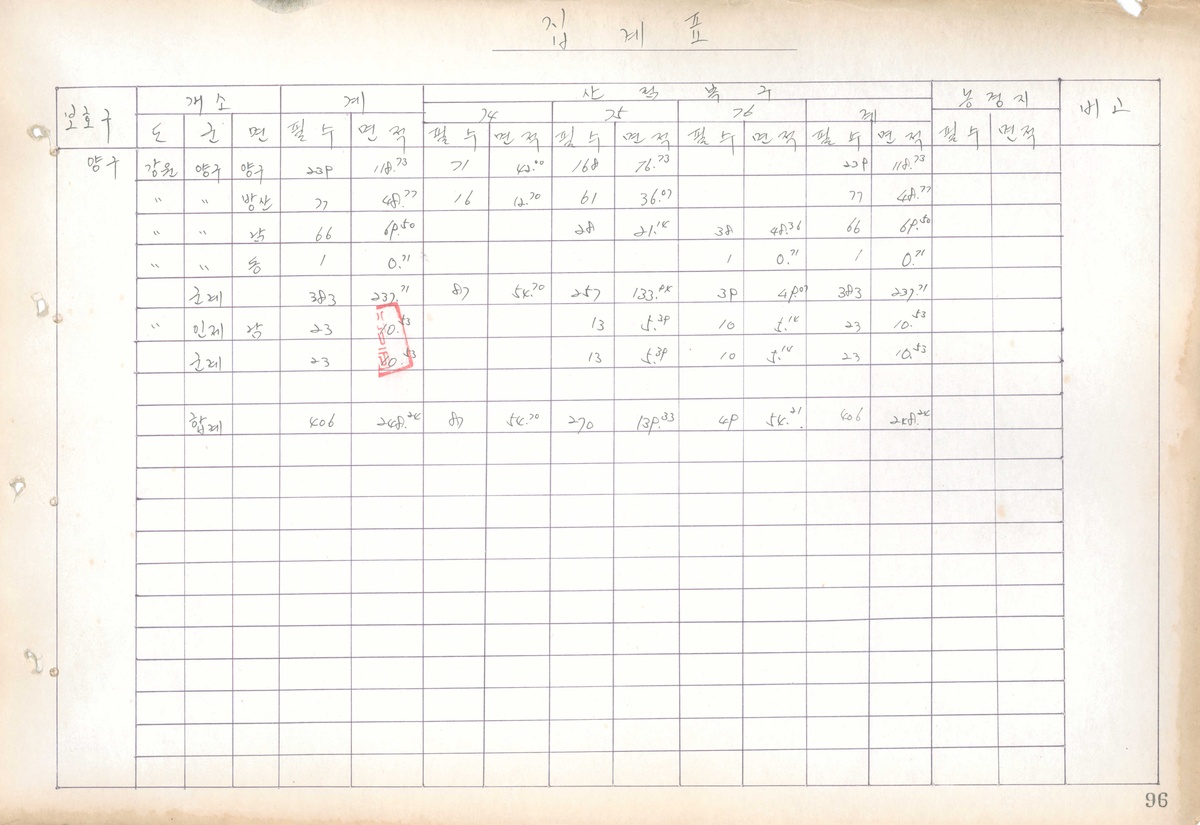 집계표
보호구 개소 계 산적복구 농경지 비고
74 75 76 계
도 군 면 필수 면적 필수 면적 필수 면적 필수 면적 필수 면적 필수 면적
양구 강원 양구 양구 239 118.73 71 42.00 168 76.73 239 118.73
" " 방산 77 48.77 16 12.70 61 36.07 77 48.77
" " 남 66 69.50 28 21.14 38 48.36 66 69.50
" " 동 1 0.71 1 0.71 1 0.71
군계 383 237.71 87 54.70 257 133.94 39 49.07 383 237.71
" 인제 남 23 10.53 13 5.39 10 5.14 23 10.53
군계 23 10.53 13 5.39 10 5.14 23 10.53
합계 406 248.24 87 54.70 270 139.33 49 54.21 406 248.24
96